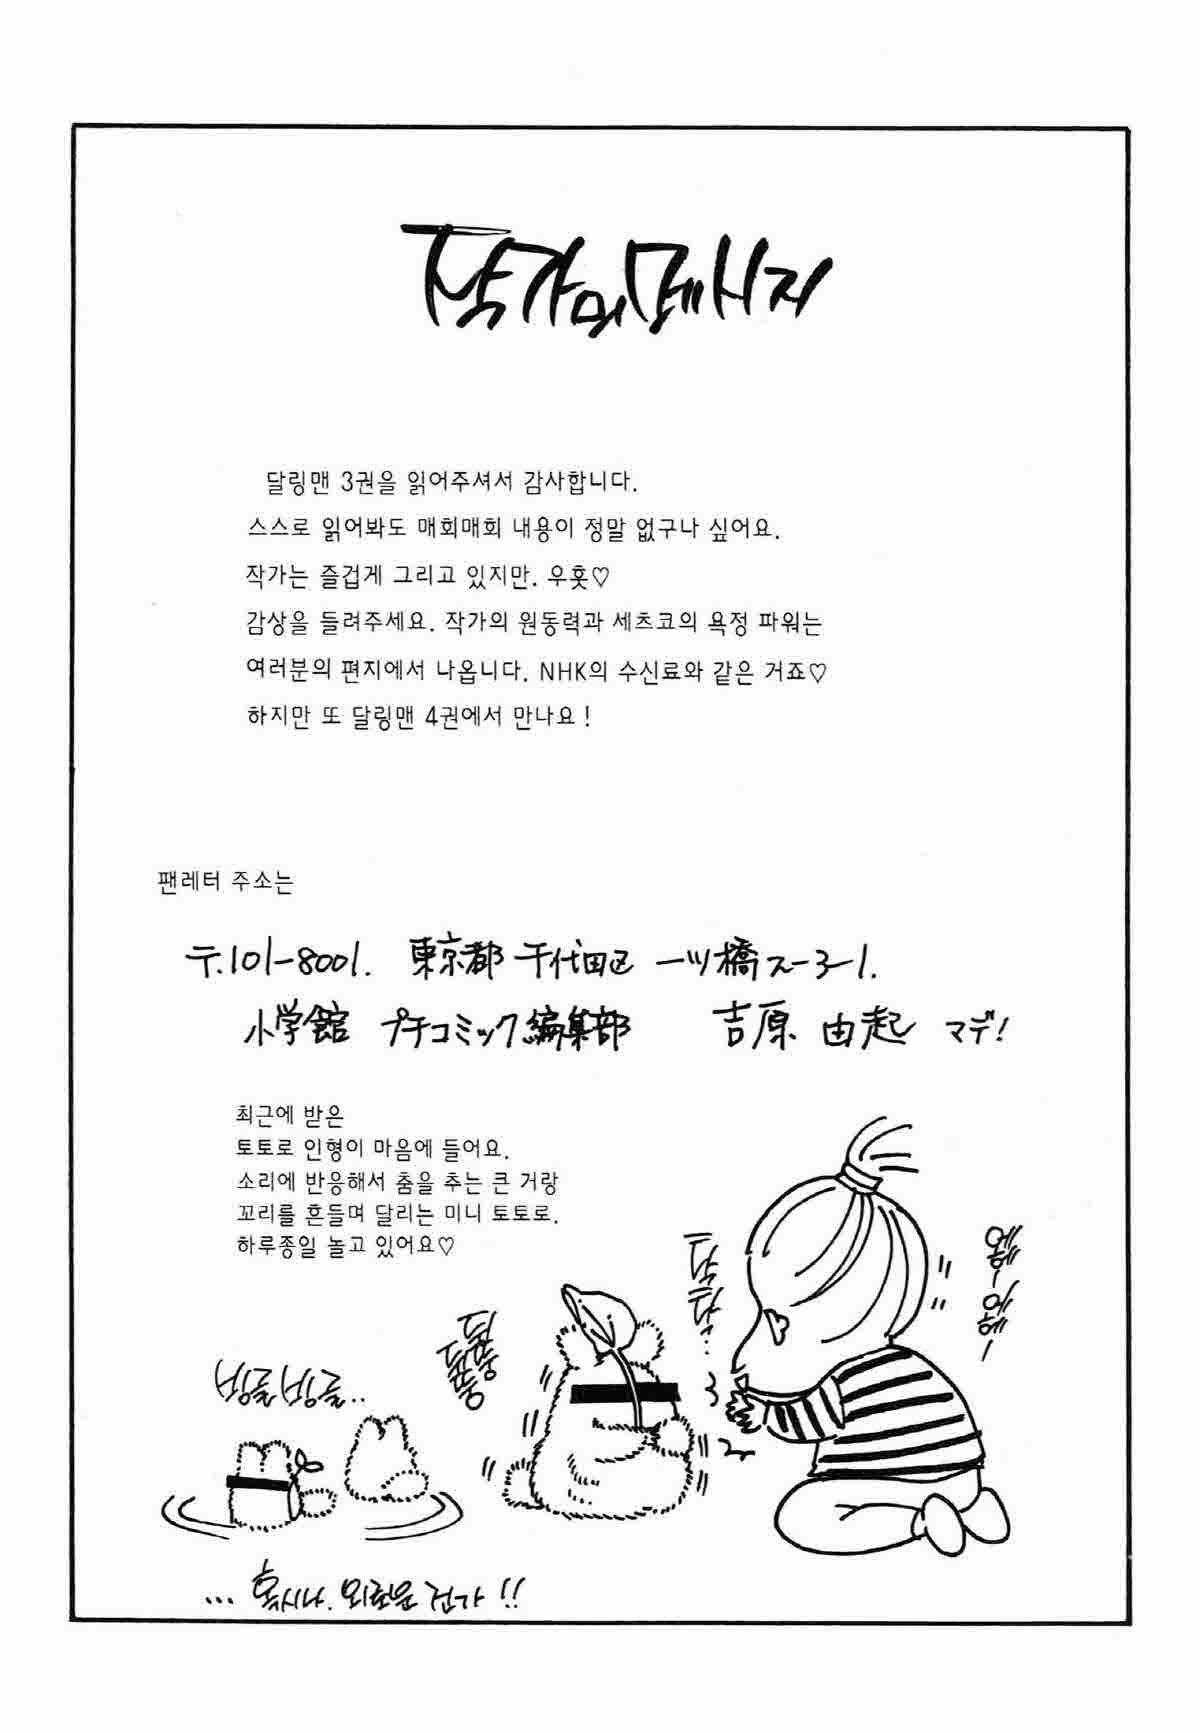 작가의 메시지
달링맨 3권을 읽어주셔서 감사합니다.
스스로 읽어봐도 매회매회 내용이 정말 없구나 싶어요.
작가는 즐겁게 그리고 있지만. 우훗♡
감상을 들려주세요. 작가의 원동력과 세츠코의 욕정 파워는
여러분의 편지에서 나옵니다. NHK의 수신료와 같은 거죠♡
하지만 또 달링맨 4권에서 만나요!
팬레터 주소는
〒101-8001. 東京都 千代田区 一ツ橋2-3-1.
小学館 プチコミック編集部 吉原 由起 マデ!
최근에 받은
토토로 인형이 마음에 들어요.
소리에 반응해서 춤을 추는 큰 거랑
꼬리를 흔들며 달리는 미니 토토로.
하루종일 놀고 있어요♡
빙글빙글..
...혹시나, 외로운 건가!!